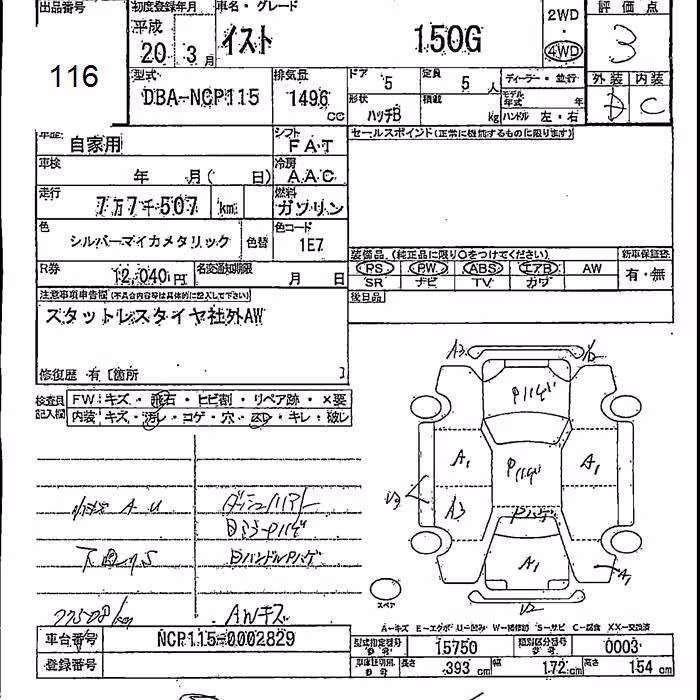 出品番号
116
初度登録年月
平成
20 3月
車名・グレード
イスト 150G
2WD
4WD
評価点
3
外装 内装
D C
型式
DBA-NCP115
排気量
1496 cc
ドア 5
定員 5 人
ディーラー・並行
形状 ハッチB
積載 kg
モデル年式 年
ハンドル 左・右
車歴 自家用
シフト FAT
セールスポイント(正常に機能するものに限ります)
車検 年 月( 日)
冷房 AAC
走行 7万7千507 km
燃料 ガソリン
色 シルバーマイカメタリック
色替
色コード 1E7
装備品(純正品に限り〇をつけてください)
新車保証書
PS PW ABS エアB AW
SR ナビ TV カワ
有・無
R券 12,040円
名変通知期限 月 日
後日品
注意事項申告欄(不具合内容等は具体的に記入して下さい)
スタットレスタイヤ社外AW
修復歴 有[箇所 ]
検査員記入欄
FW キズ・飛石・ヒビ割・リペア跡・×要
内装 キズ・汚れ・コゲ・穴・スレ・キレ・破レ
A3
Pハゲ
A1
Pハゲ
A1
A3
U3
Pハゲ
A1
A1
U2
小キズ A.U
下回りS
77508km
AWキズ
スペア
A-キズ E-エクボ U-凹み W-補修跡 S-サビ C-腐食 XX-交換済
車台番号 NCP115-0002829
登録番号
型式指定番号 15750
類別区分番号 0003
車検証切用 長さ 393 cm 幅 172 cm 高さ 154 cm